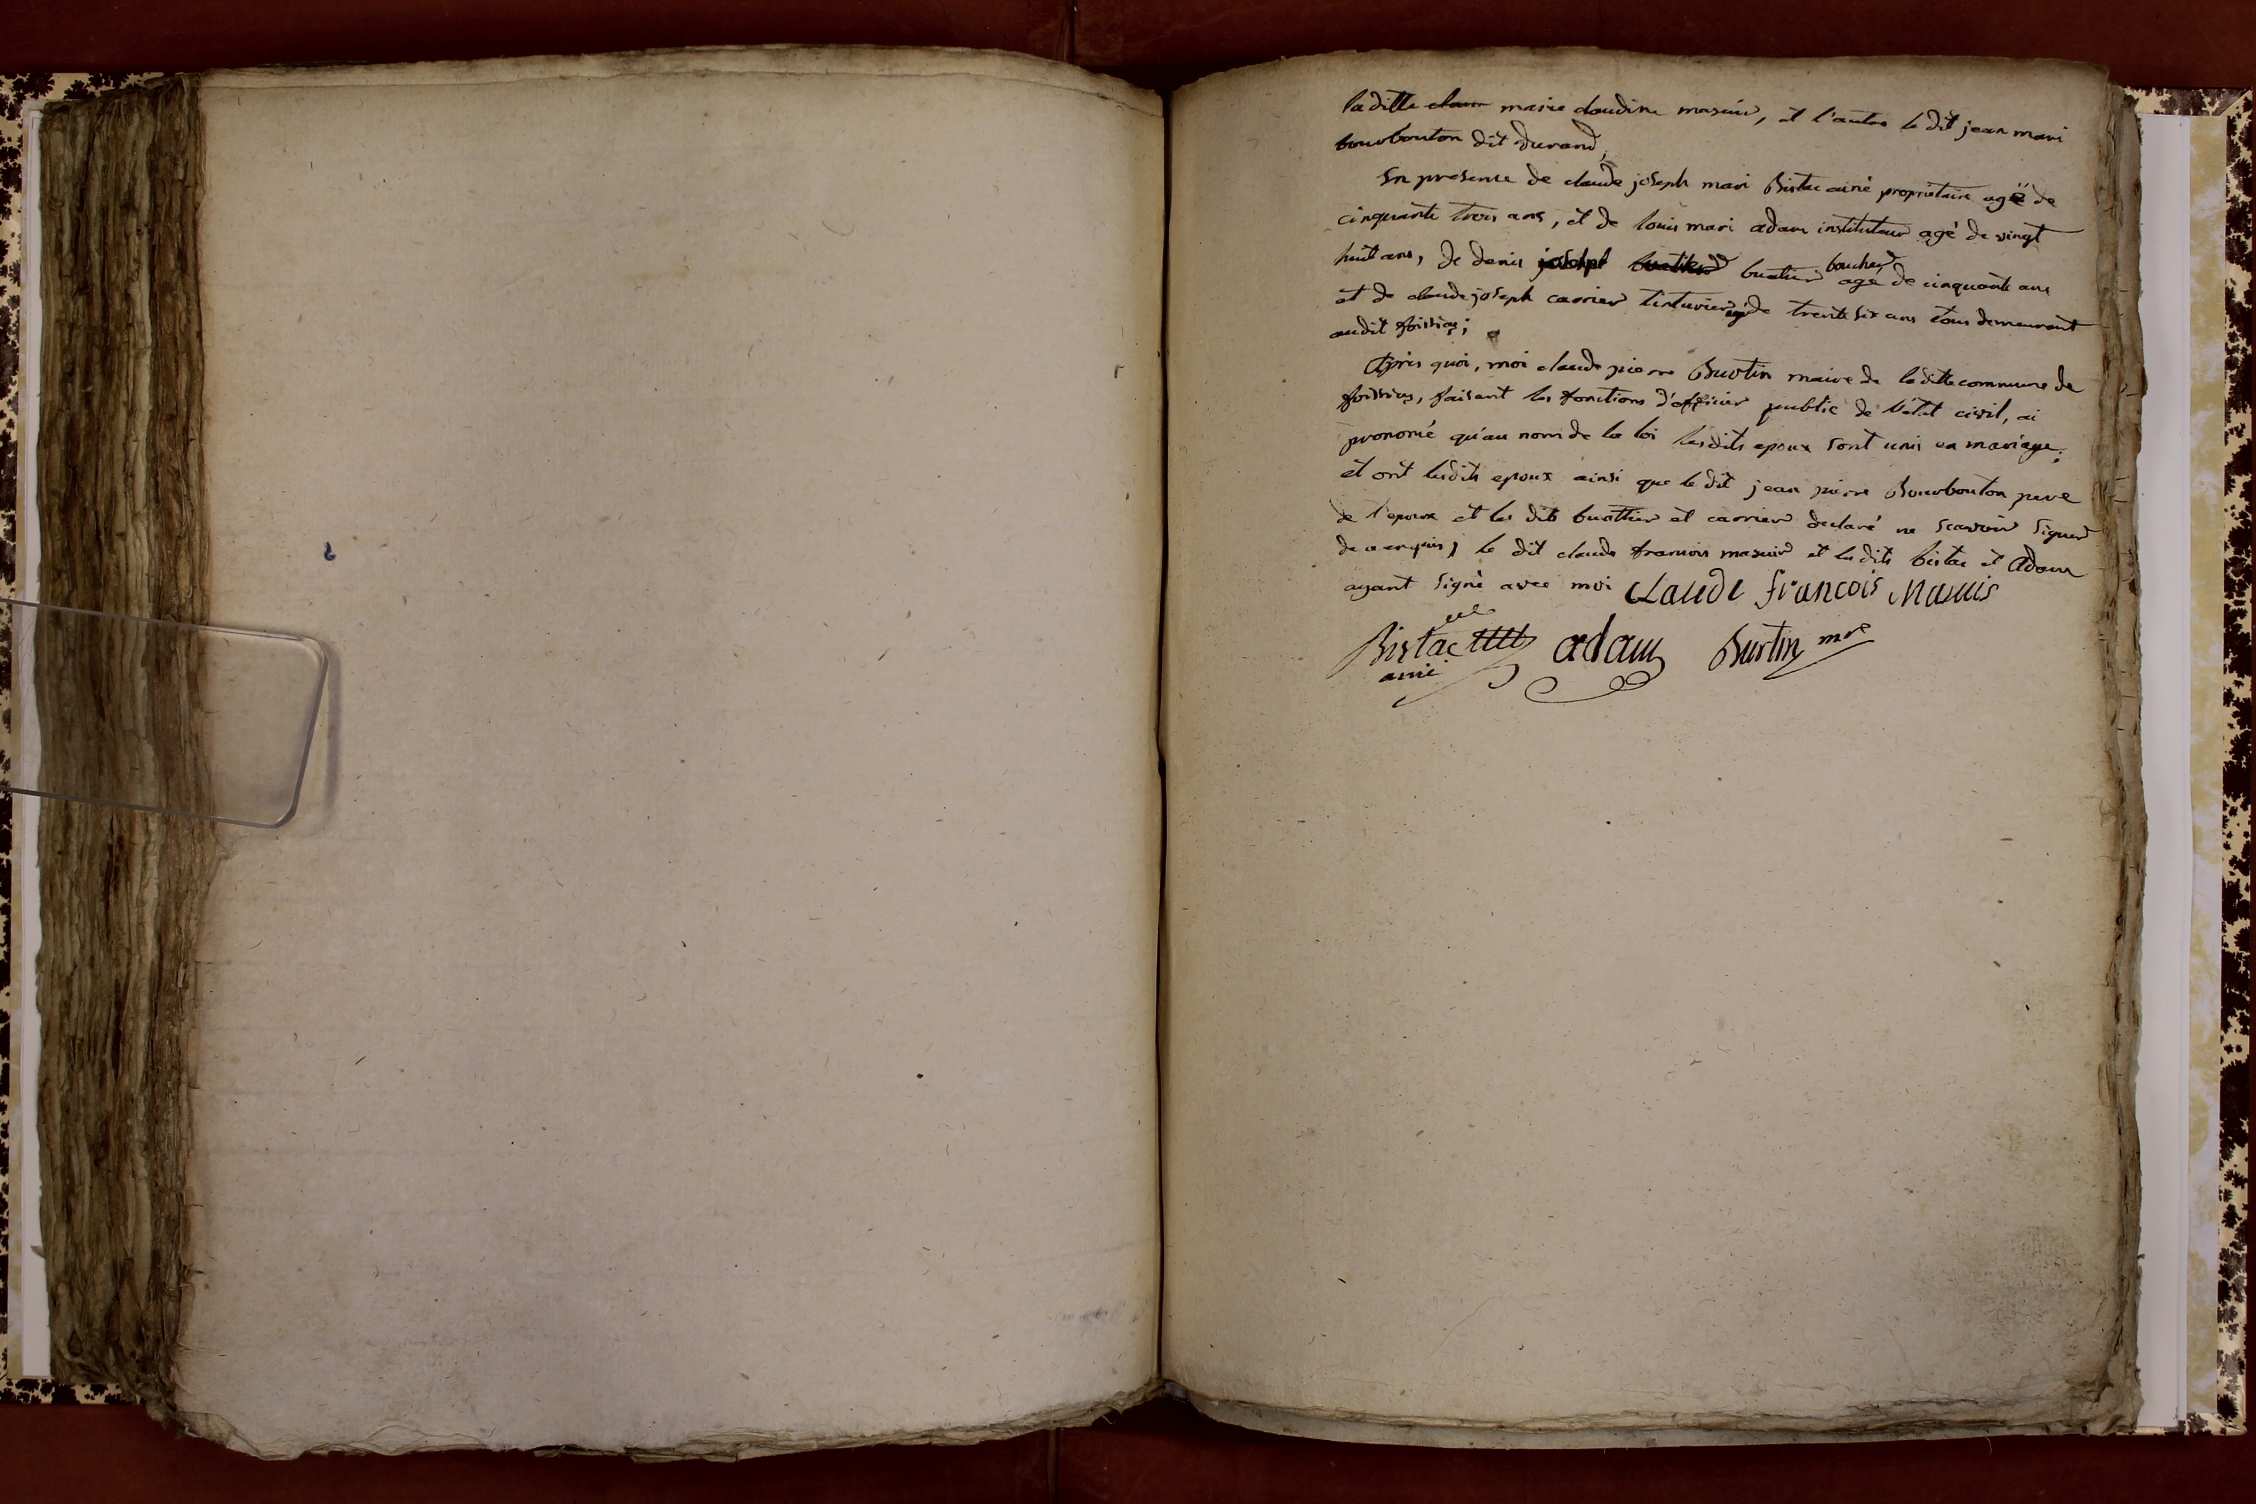 laditte marie claudine masuir, et l'autre le dit jean mari
bourbouton dit durand,
En presence de claude joseph mari Bistac ainé proprietaire agé de
cinquante trois ans, et de louis mari adam instituteur agé de vingt
huit ans, de denis joseph buatier buatier boucher agé de cinquante ans
et de claude joseph carrier tinturier agé de trente six ans tous demeurant
audit foissiaç;
Après quoi, moi claude pierre Burtin maire de laditte commune de
foissiaç, faisant les fonctions d'officier public de l'état civil, ai
prononcé qu'au nom de la loi lesdits epoux sont unis en mariage;
et ont lesdits epoux ainsi que le dit jean pierre Bourbouton pere
de l'epoux et les dits buattier et carrier declaré ne scavoir signer
de ce enquis, le dit claude francois masuir et les dits bistac et Adam
ayant signé avec moi Claude francois Masuis
Bistac adam Burtin mre
ainé